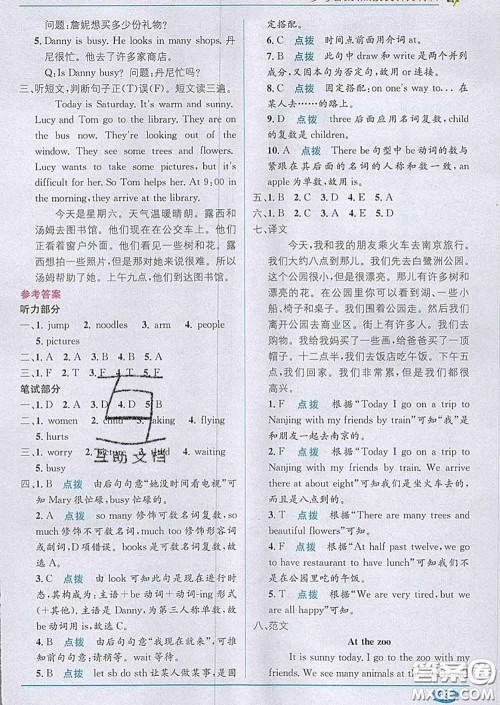 问题：詹妮想买多少份礼物？
5. Danny is busy. He looks in many shops. 丹
尼很忙。他去了许多家商店。
Q: Is Danny busy? 问题：丹尼忙吗？
三、听短文，判断句子正(T)误(F)。短文读三遍。
Today is Saturday. It's warm and sunny.
Lucy and Tom go to the library. They are on
the bus now. They're looking out of the
window. They see some trees and flowers.
Lucy wants to take some pictures, but it's
difficult. So Tom helps her. At 9:00 in
the morning, they arrive at the library.
今天是星期六。天气温暖晴朗。露西和
汤姆去图书馆。他们现在在公交车上。他们
正看着窗户外面。他们看见一些树和花。
露西想拍一些照片，但是那很难。所以
汤姆帮助了她。上午九点，他们到达图书馆。
参考答案
听力部分
一、1. jump 2. noodles 3. arm 4. people
5. pictures
二、1. A 2. A 3. B 4. B 5. A
三、1. F 2. F 3. T 4. F 5. T
笔试部分
一、1. D 2. A 3. D 4. D 5. B
二、1. women 2. child 3. taking 4. flying
5. hurts
三、1. worry 2. 4. wait
5. busy
四、1. B 2. A 点拨 由后句句意“她没有时间看电视”可
知 Mary 很忙碌，busy 忙碌的。
2. A 点拨 so many 修饰可数名词复数，so
much 修饰不可数名词，much too 修饰形容词
或副词，D 项错误。books 为可数名词复数，故
选 A。
3. C 点拨 由 look 可知此句是现在进行时，现
在进行时结构：主语＋be 动词＋动词-ing 形式
(＋其他)。主语是 Danny，为第三人称单数，故
be 动词用 is，故选 C。
4. B 点拨 由后句句意“我现在就来”，可推
知前句句意：“请稍等一下”。wait 等待。
5. B 点拨 let sb do sth 让某人做某事，是固
定搭配。
6. A 点拨 时间点前面用介词 at。
7. B 点拨 此句中 draw 和 write 是两个并列
成分，又因本句为否定句，故用 or 连接。
8. C 点拨 固定搭配：on one's way to... 在
某人去……的路上。
9. D 点拨 three 后面应用名词复数，child
的复数是 children。
10. A 点拨 There be 句型中 be 动词的数与
紧跟在其后面的名词的人称和数一致，an
apple 为单数，故用 is。
五、1. B 2. C 3. D 4. E 5. A
六、1. B 2. D 3. A 4. E 5. C
七、译文
今天，我和我的朋友乘火车去南京旅行。
我们大约八点到那儿。我们首先去白鹭洲公园。
这个公园很大，但是很漂亮。那儿有许多树和
漂亮的花。在公园里你可以看一些河，一些小
船、椅子和桌子。我们在公园照相。然后，我们
离开公园去商业区。我们在商业区里买了许多
东西。我给妈妈买了一些鸡，给爸爸买了一顶
帽子。十二点半，我们去饭店吃午饭。下午五
点，我们回家。我们非常累，但是我们都很
高兴。
1. F 点拨 根据“Today I go on a trip to
Nanjing with my friends by train”可知“我”是
和朋友一起去南京的。
2. T 点拨 根据“Today I go on a trip to
Nanjing with my friends by train. We arrive
there at about eight”可知我们是坐火车去的，而
且是八点到的。
3. T 点拨 根据“There are many trees and
beautiful flowers”可知。
4. F 点拨 根据“At half past twelve, we go
to a restaurant to have lunch”可知，我们不
是在公园里吃的午饭。
5. F 点拨 根据“We are very tired, but we
are all happy”可知。
八、范文
At the zoo
It is sunny today. I go to the zoo with my
friends. We see many animals at the
互助文档
答案圈